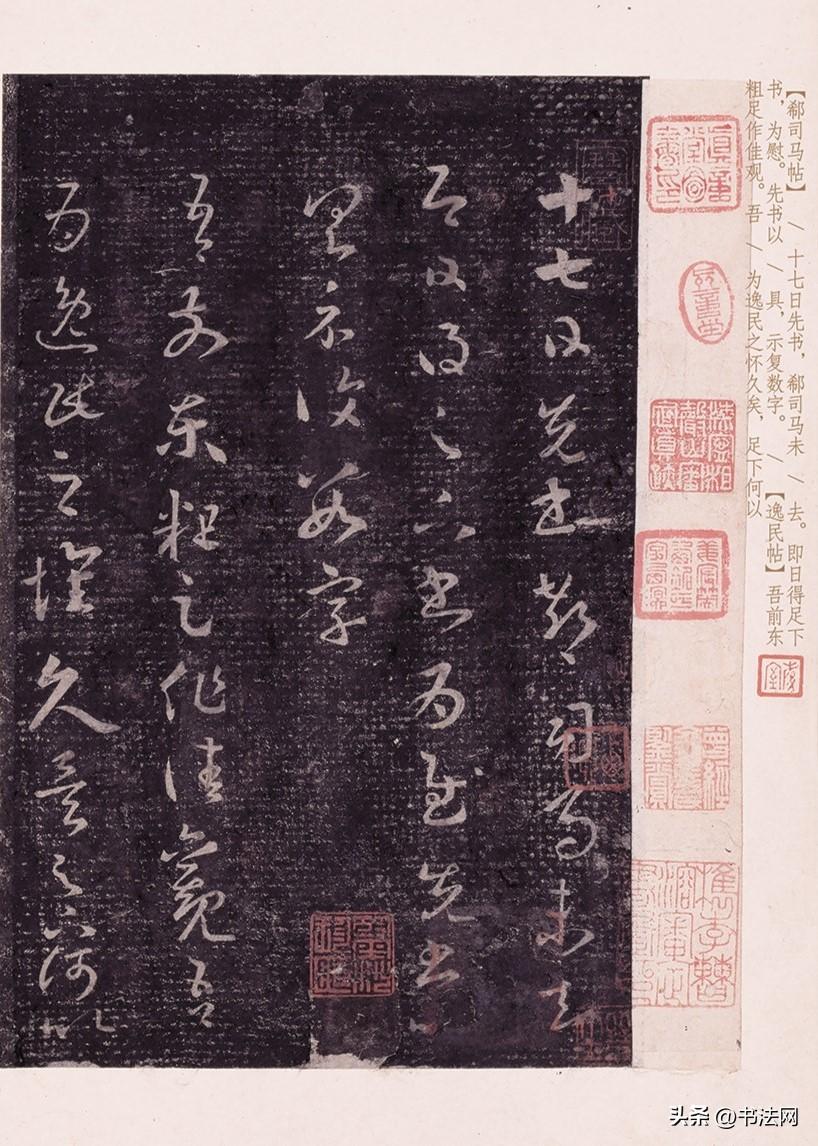 【郗司马帖】 / 十七日先书，郗司马未 / 去。即日得足下
书，为慰。先书以 / 具，示复数字。 / 【逸民帖】吾前东
粗足作佳观。吾 / 为逸民之怀久矣，足下何以
十七日先書郗司馬未去
即日得足下書為慰先書以
具示復數字
吾前東粗足作佳觀吾
為逸民之懷久矣足下何以
头条 @书法网